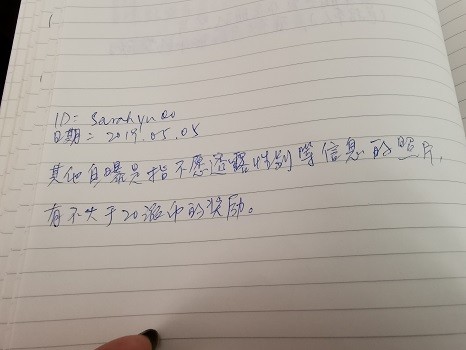 ID: Sarahyuoo
日期: 2019.05.05
其他自曝是指不愿透露性别等信息的照片,
有不大于20滋币的奖励。